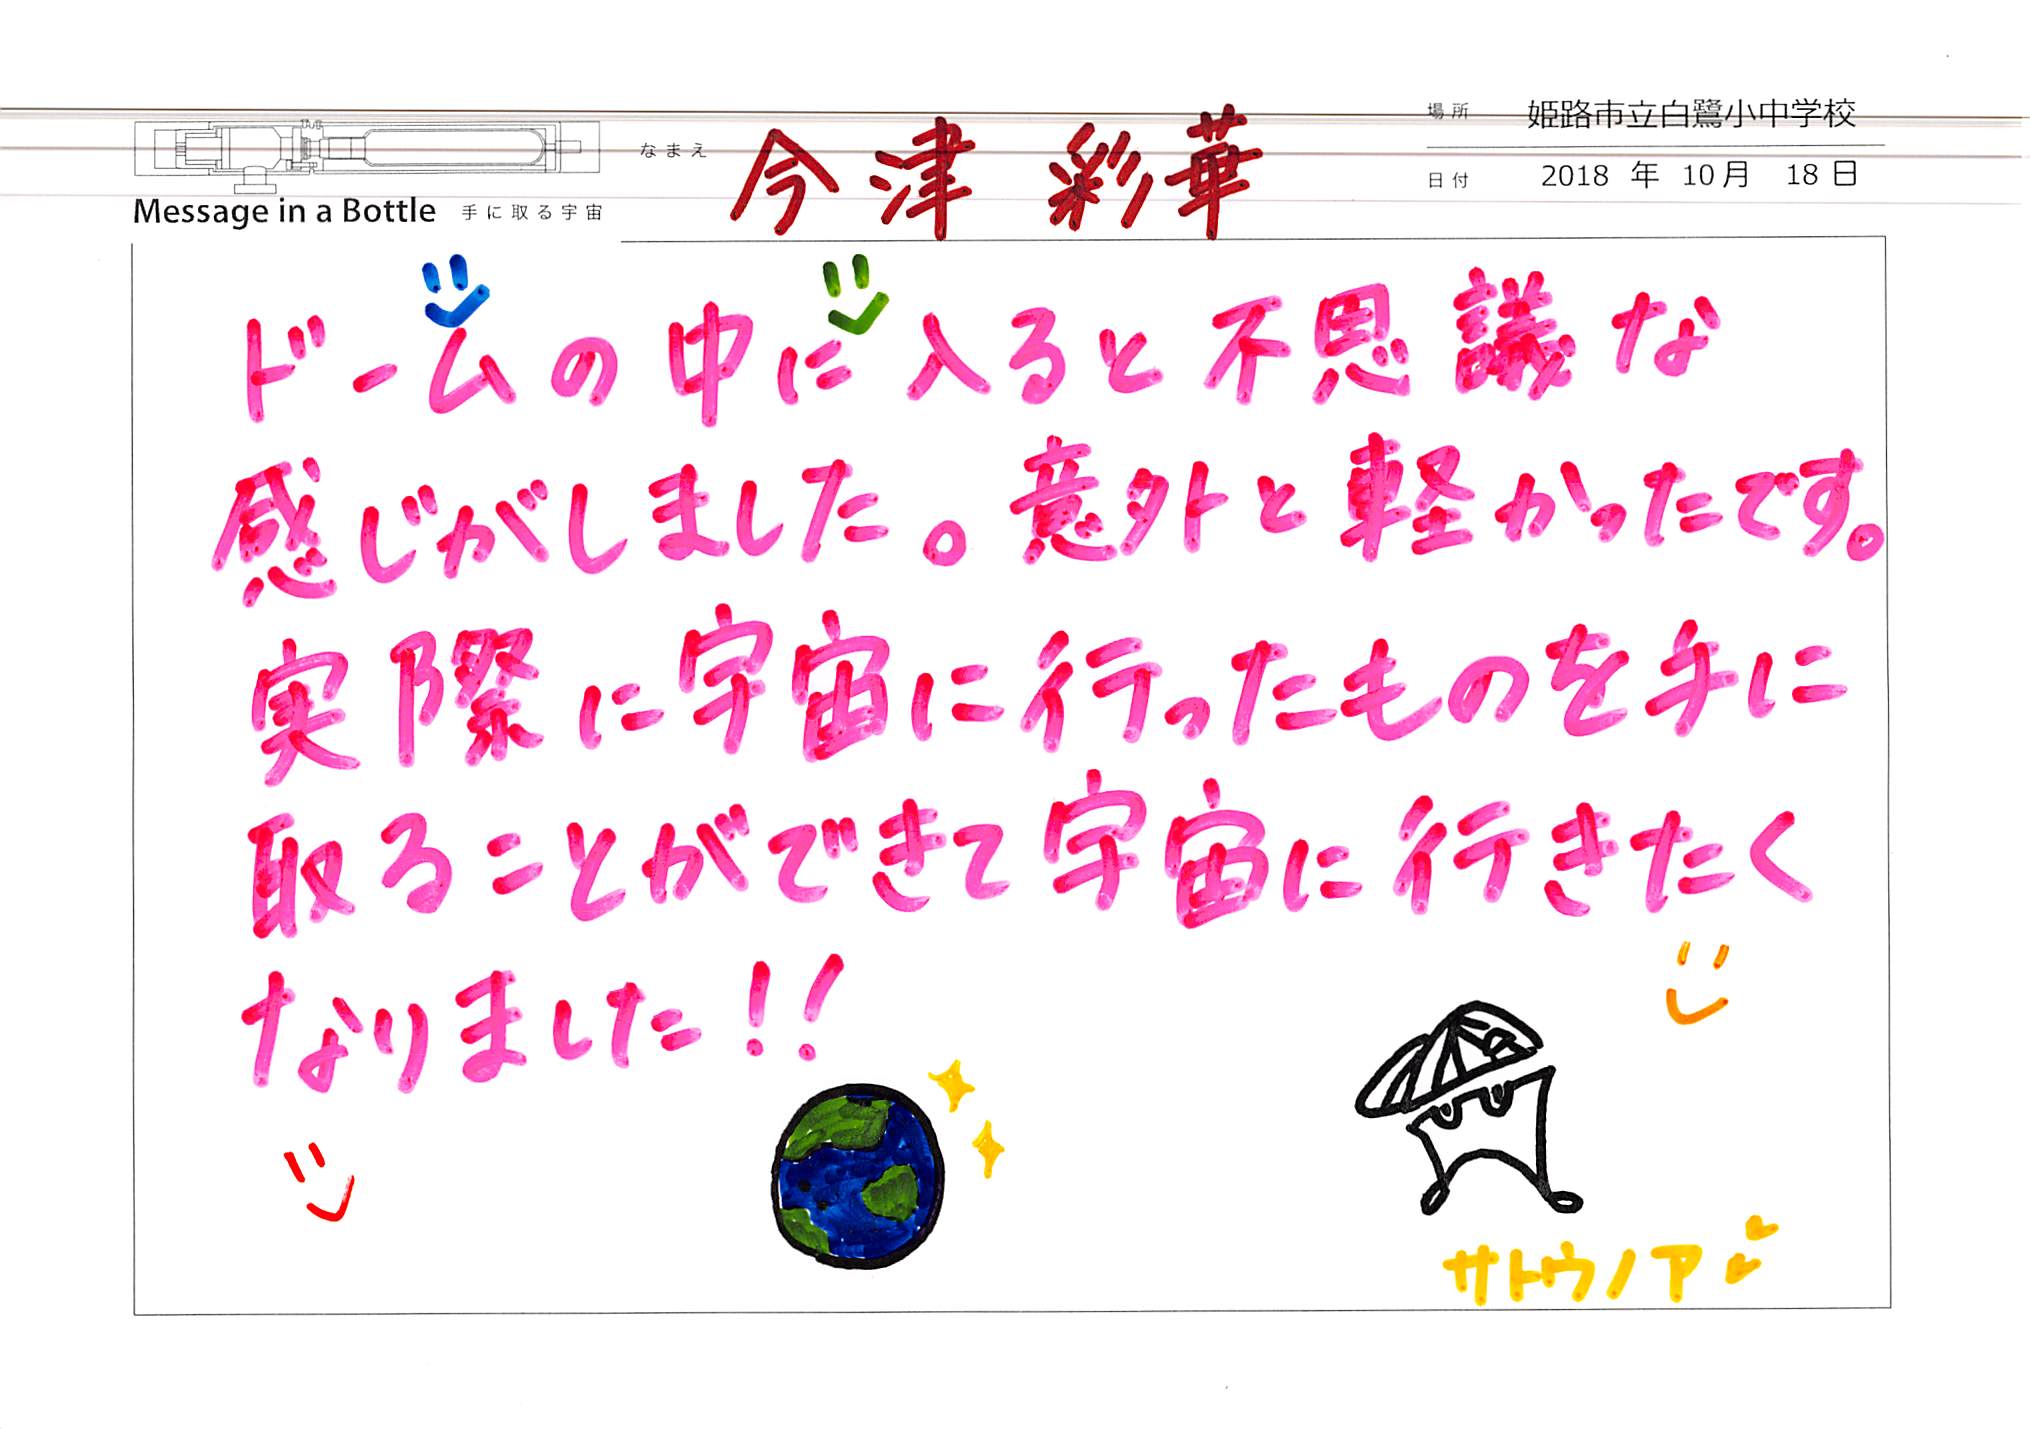 場所 姫路市立白鷺小中学校
なまえ 今津 彩華
日付 2018 年 10月 18日
Message in a Bottle 手に取る宇宙
ドームの中に入ると不思議な
感じがしました。意外と軽かったです。
実際に宇宙に行ったものを手に
取ることができて宇宙に行きたく
なりました!!
サトウノア